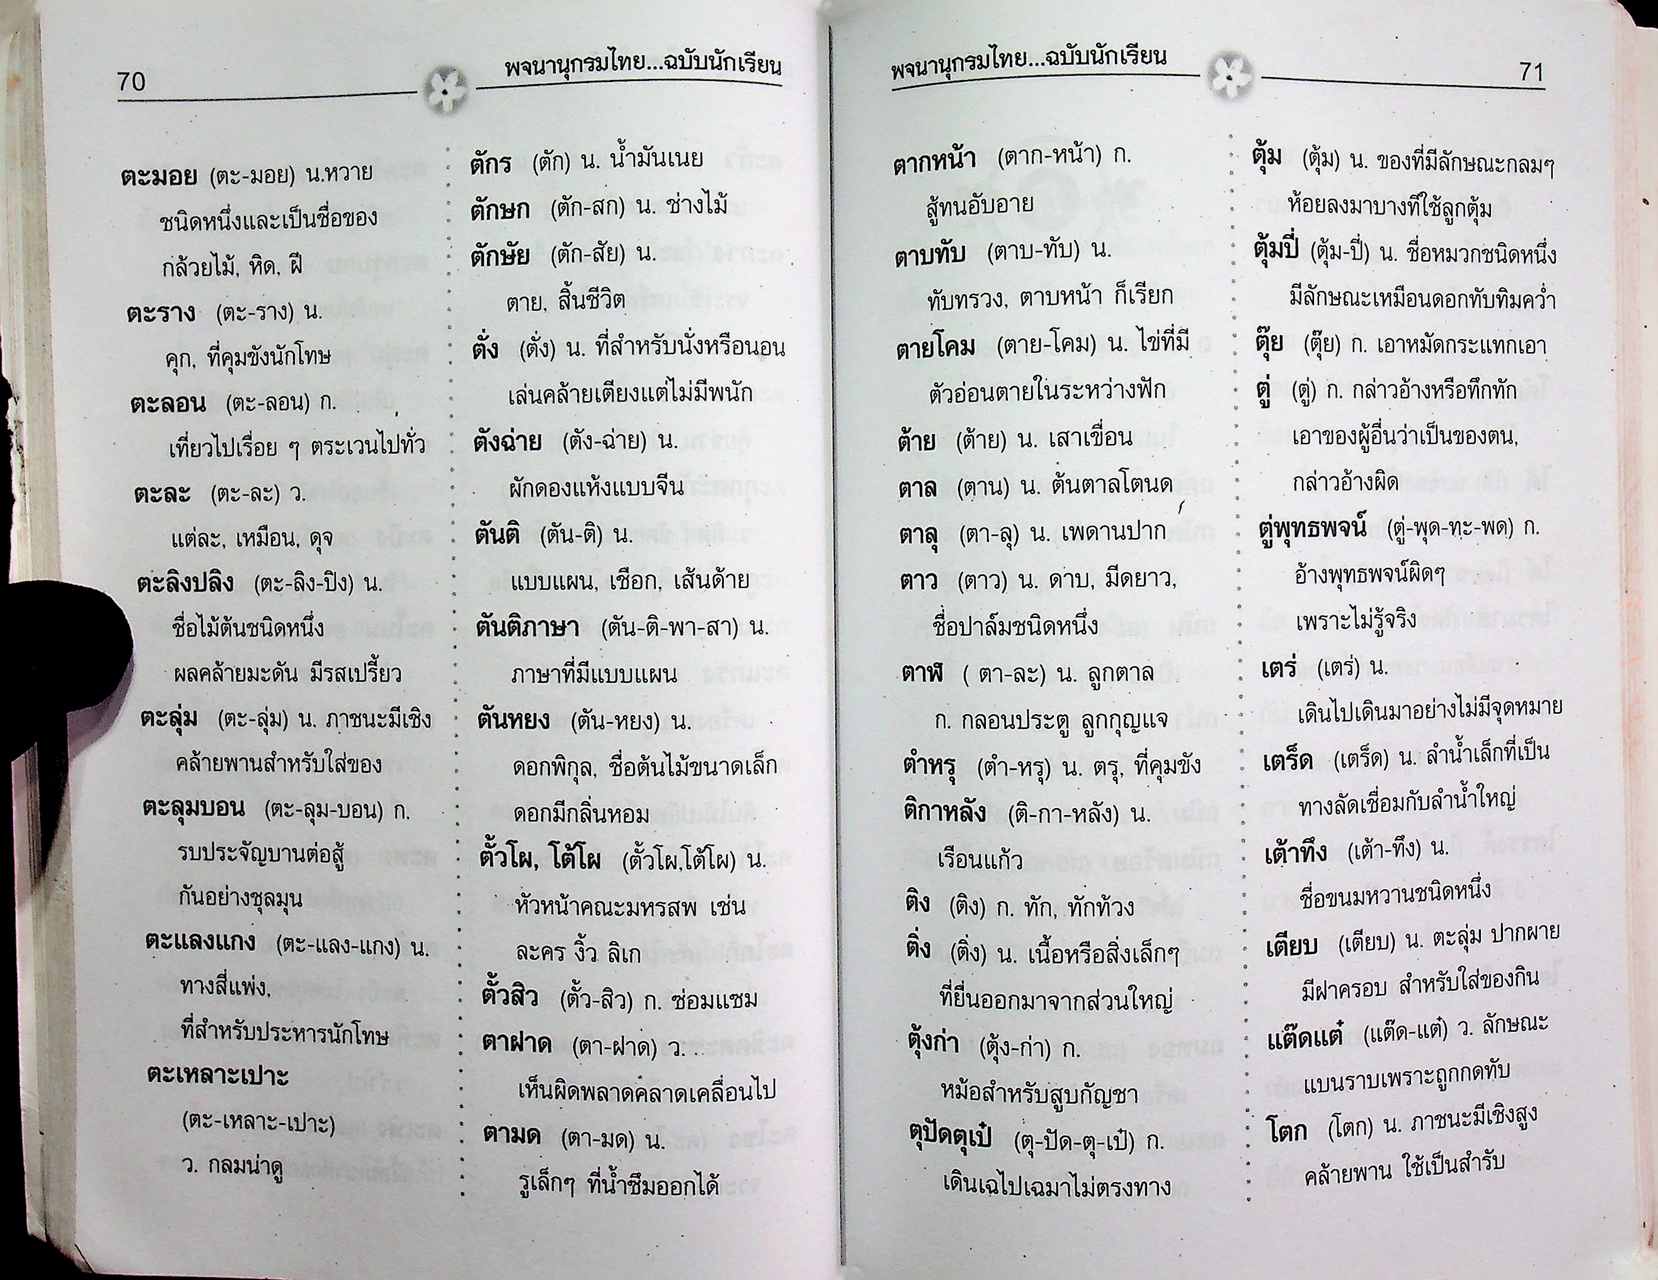 70
พจนานุกรมไทย...ฉบับนักเรียน
ตะมอย (ตะ-มอย) น.หวาย
ชนิดหนึ่งและเป็นชื่อของ
กล้วยไม้, หิด, ฝี
ตะราง (ตะ-ราง) น.
คุก, ที่คุมขังนักโทษ
ตะลอน (ตะ-ลอน) ก.
เที่ยวไปเรื่อย ๆ ตระเวนไปทั่ว
ตะละ (ตะ-ละ) ว.
แต่ละ, เหมือน, ดุจ
ตะลิงปลิง (ตะ-ลิง-ปิง) น.
ชื่อไม้ต้นชนิดหนึ่ง
ผลคล้ายมะดัน มีรสเปรี้ยว
ตะลุ่ม (ตะ-ลุ่ม) น. ภาชนะมีเชิง
คล้ายพานสำหรับใส่ของ
ตะลุมบอน (ตะ-ลุม-บอน) ก.
รบประจัญบานต่อสู้
กันอย่างชุลมุน
ตะแลงแกง (ตะ-แลง-แกง) น.
ทางสี่แพ่ง,
ที่สำหรับประหารนักโทษ
ตะเหลาะเปาะ
(ตะ-เหลาะ-เปาะ)
ว. กลมน่าดู
ตักร (ตัก) น. น้ำมันเนย
ตักษก (ตัก-สก) น. ช่างไม้
ตักษัย (ตัก-สัย) น.
ตาย, สิ้นชีวิต
ตั่ง (ตั่ง) น. ที่สำหรับนั่งหรือนอน
เล่นคล้ายเตียงแต่ไม่มีพนัก
ตังฉ่าย (ตัง-ฉ่าย) น.
ผักดองแห้งแบบจีน
ตันติ (ตัน-ติ) น.
แบบแผน, เชือก, เส้นด้าย
ตันติภาษา (ตัน-ติ-พา-สา) น.
ภาษาที่มีแบบแผน
ตันหยง (ตัน-หยง) น.
ดอกพิกุล, ชื่อต้นไม้ขนาดเล็ก
ดอกมีกลิ่นหอม
ตั้วโผ, โต้โผ (ตั้วโผ,โต้โผ) น.
หัวหน้าคณะมหรสพ เช่น
ละคร งิ้ว ลิเก
ตั้วสิว (ตั้ว-สิว) ก. ซ่อมแซม
ตาฝาด (ตา-ฝาด) ว.
เห็นผิดพลาดคลาดเคลื่อนไป
ตามด (ตา-มด) น.
รูเล็กๆ ที่น้ำซึมออกได้
พจนานุกรมไทย...ฉบับนักเรียน
71
ตากหน้า (ตาก-หน้า) ก.
สู้ทนอับอาย
ตาบทับ (ตาบ-ทับ) น.
ทับทรวง, ตาบหน้า ก็เรียก
ตายโคม (ตาย-โคม) น. ไข่ที่มี
ตัวอ่อนตายในระหว่างฟัก
ต้าย (ต้าย) น. เสาเขื่อน
ตาล (ตาน) น. ต้นตาลโตนด
ตาลุ (ตา-ลุ) น. เพดานปาก
ตาว (ตาว) น. ดาบ, มีดยาว,
ชื่อปาล์มชนิดหนึ่ง
ตาฬ ( ตา-ละ) น. ลูกตาล
ก. กลอนประตู ลูกกุญแจ
ตำหรุ (ตำ-หรุ) น. ตรุ, ที่คุมขัง
ติกาหลัง (ติ-กา-หลัง) น.
เรือนแก้ว
ติง (ติง) ก. ทัก, ทักท้วง
ติ่ง (ติ่ง) น. เนื้อหรือสิ่งเล็กๆ
ที่ยื่นออกมาจากส่วนใหญ่
ตุ้งก่า (ตุ้ง-ก่า) ก.
หม้อสำหรับสูบกัญชา
ตุปัดตุเป๋ (ตุ-ปัด-ตุ-เป๋) ก.
เดินเฉไปเฉมาไม่ตรงทาง
ตุ้ม (ตุ้ม) น. ของที่มีลักษณะกลมๆ
ห้อยลงมาบางทีใช้ลูกตุ้ม
ตุ้มปี่ (ตุ้ม-ปี่) น. ชื่อหมวกชนิดหนึ่ง
มีลักษณะเหมือนดอกทับทิมคว่ำ
ตุ๊ย (ตุ๊ย) ก. เอาหมัดกระแทกเอา
ตู่ (ตู่) ก. กล่าวอ้างหรือทึกทัก
เอาของผู้อื่นว่าเป็นของตน,
กล่าวอ้างผิด
ตู่พุทธพจน์ (ตู่-พุด-ทะ-พด) ก.
อ้างพุทธพจน์ผิดๆ
เพราะไม่รู้จริง
เตร่ (เตร่) น.
เดินไปเดินมาอย่างไม่มีจุดหมาย
เตร็ด (เตร็ด) น. ลำน้ำเล็กที่เป็น
ทางลัดเชื่อมกับลำน้ำใหญ่
เต้าทึง (เต้า-ทึง) น.
ชื่อขนมหวานชนิดหนึ่ง
เตียบ (เตียบ) น. ตะลุ่ม ปากผาย
มีฝาครอบ สำหรับใส่ของกิน
แต๊ดแต๋ (แต๊ด-แต๋) ว. ลักษณะ
แบนราบเพราะถูกกดทับ
โตก (โตก) น. ภาชนะมีเชิงสูง
คล้ายพาน ใช้เป็นสำรับ